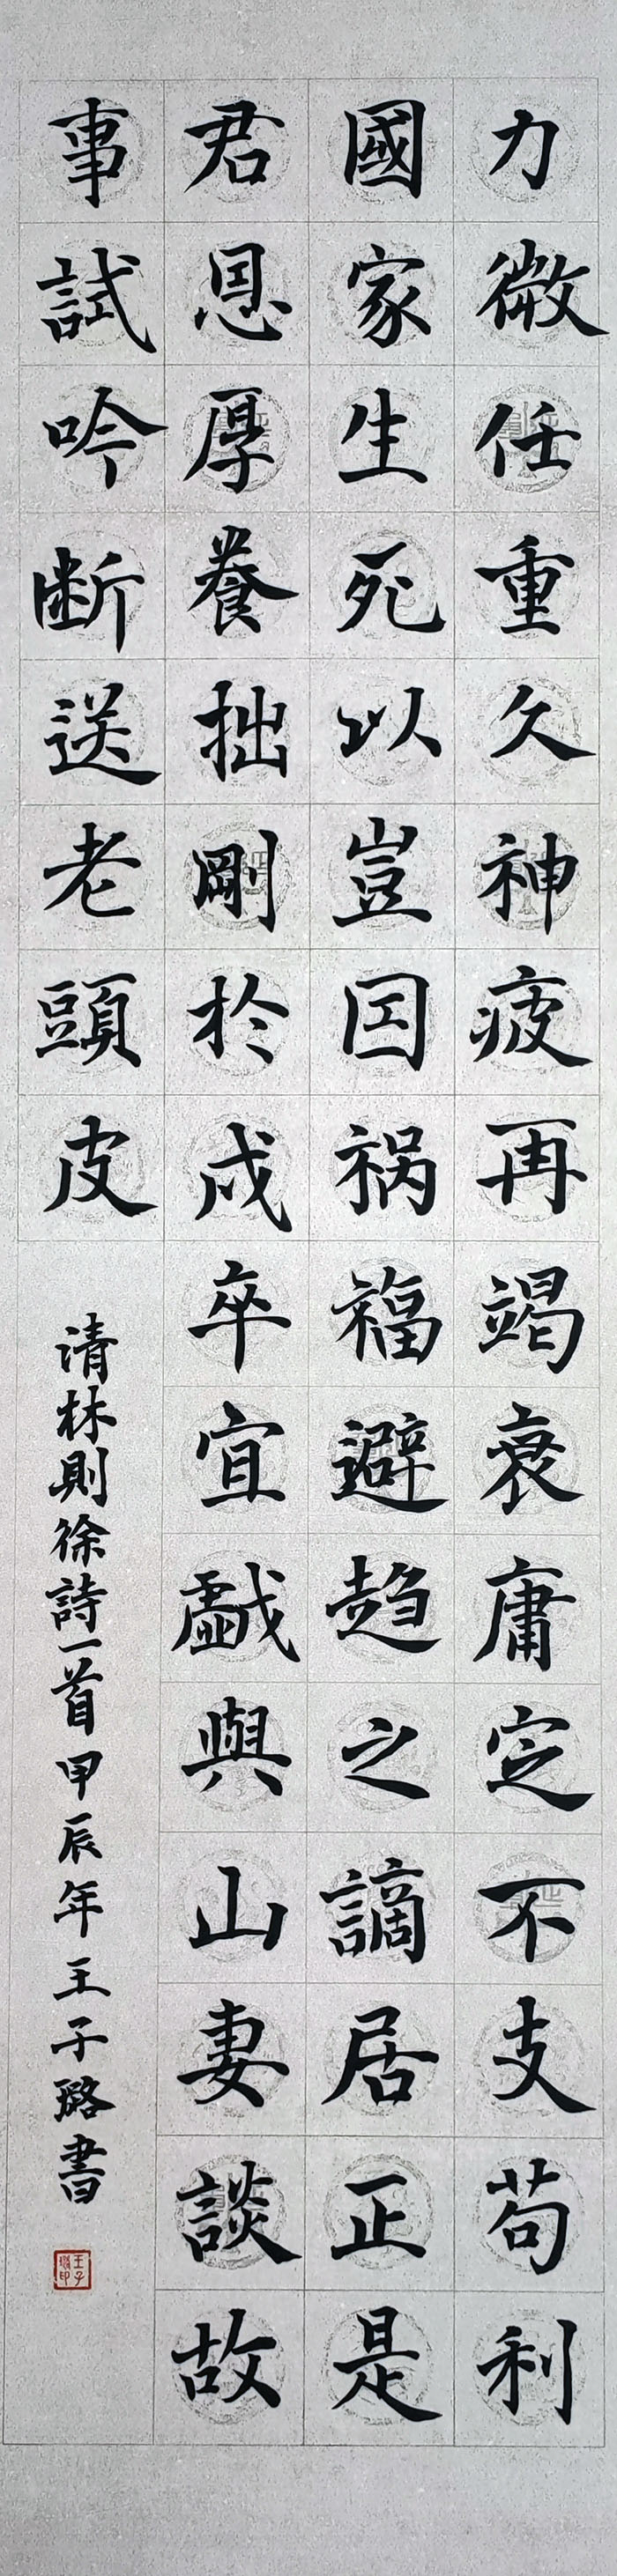 力微任重久神疲再竭衰庸定不支苟利
國家生死以豈因祸福避趋之謫居正是
君恩厚養拙剛於戍卒宜戲與山妻談故
事試吟断送老頭皮
清林則徐詩一首甲辰年王子璐書
王子璐印